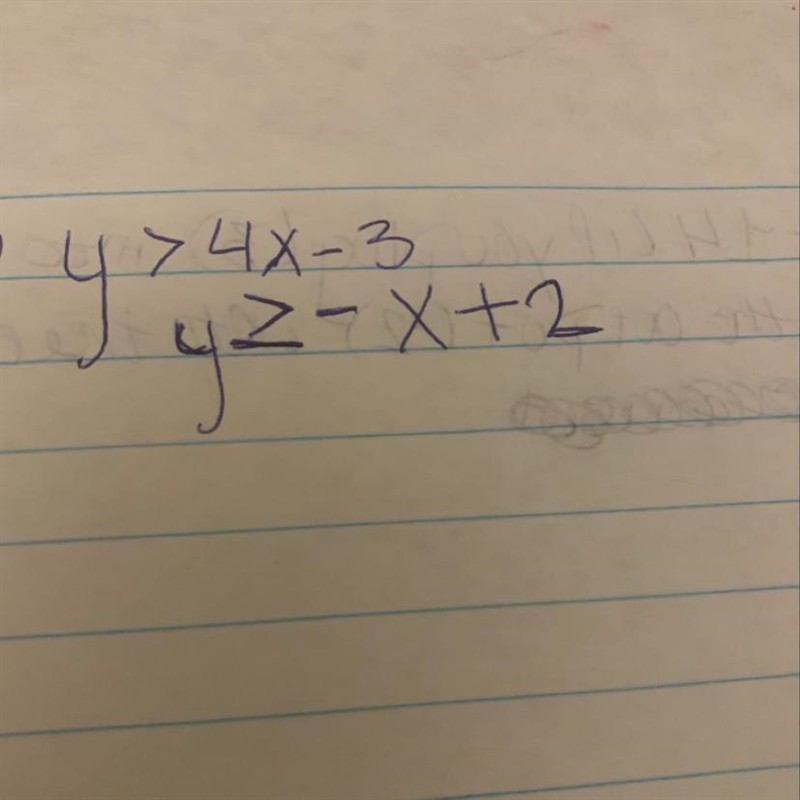 y > 4x - 3
y ≥ - x + 2